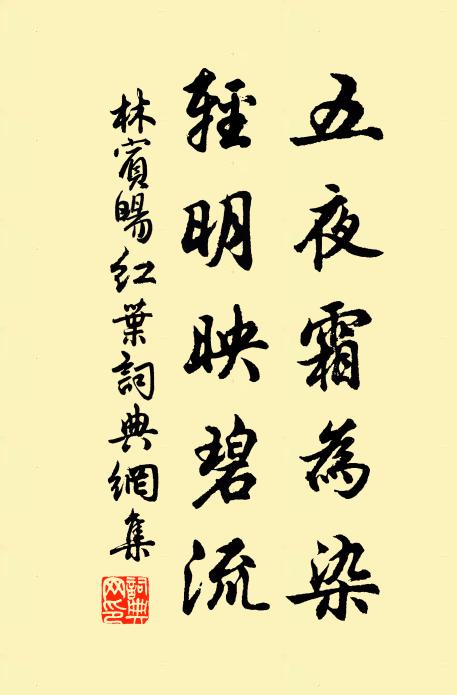 五夜霜為染
輕明映碧流
林賓暘紅葉詞典網集
詞典网印